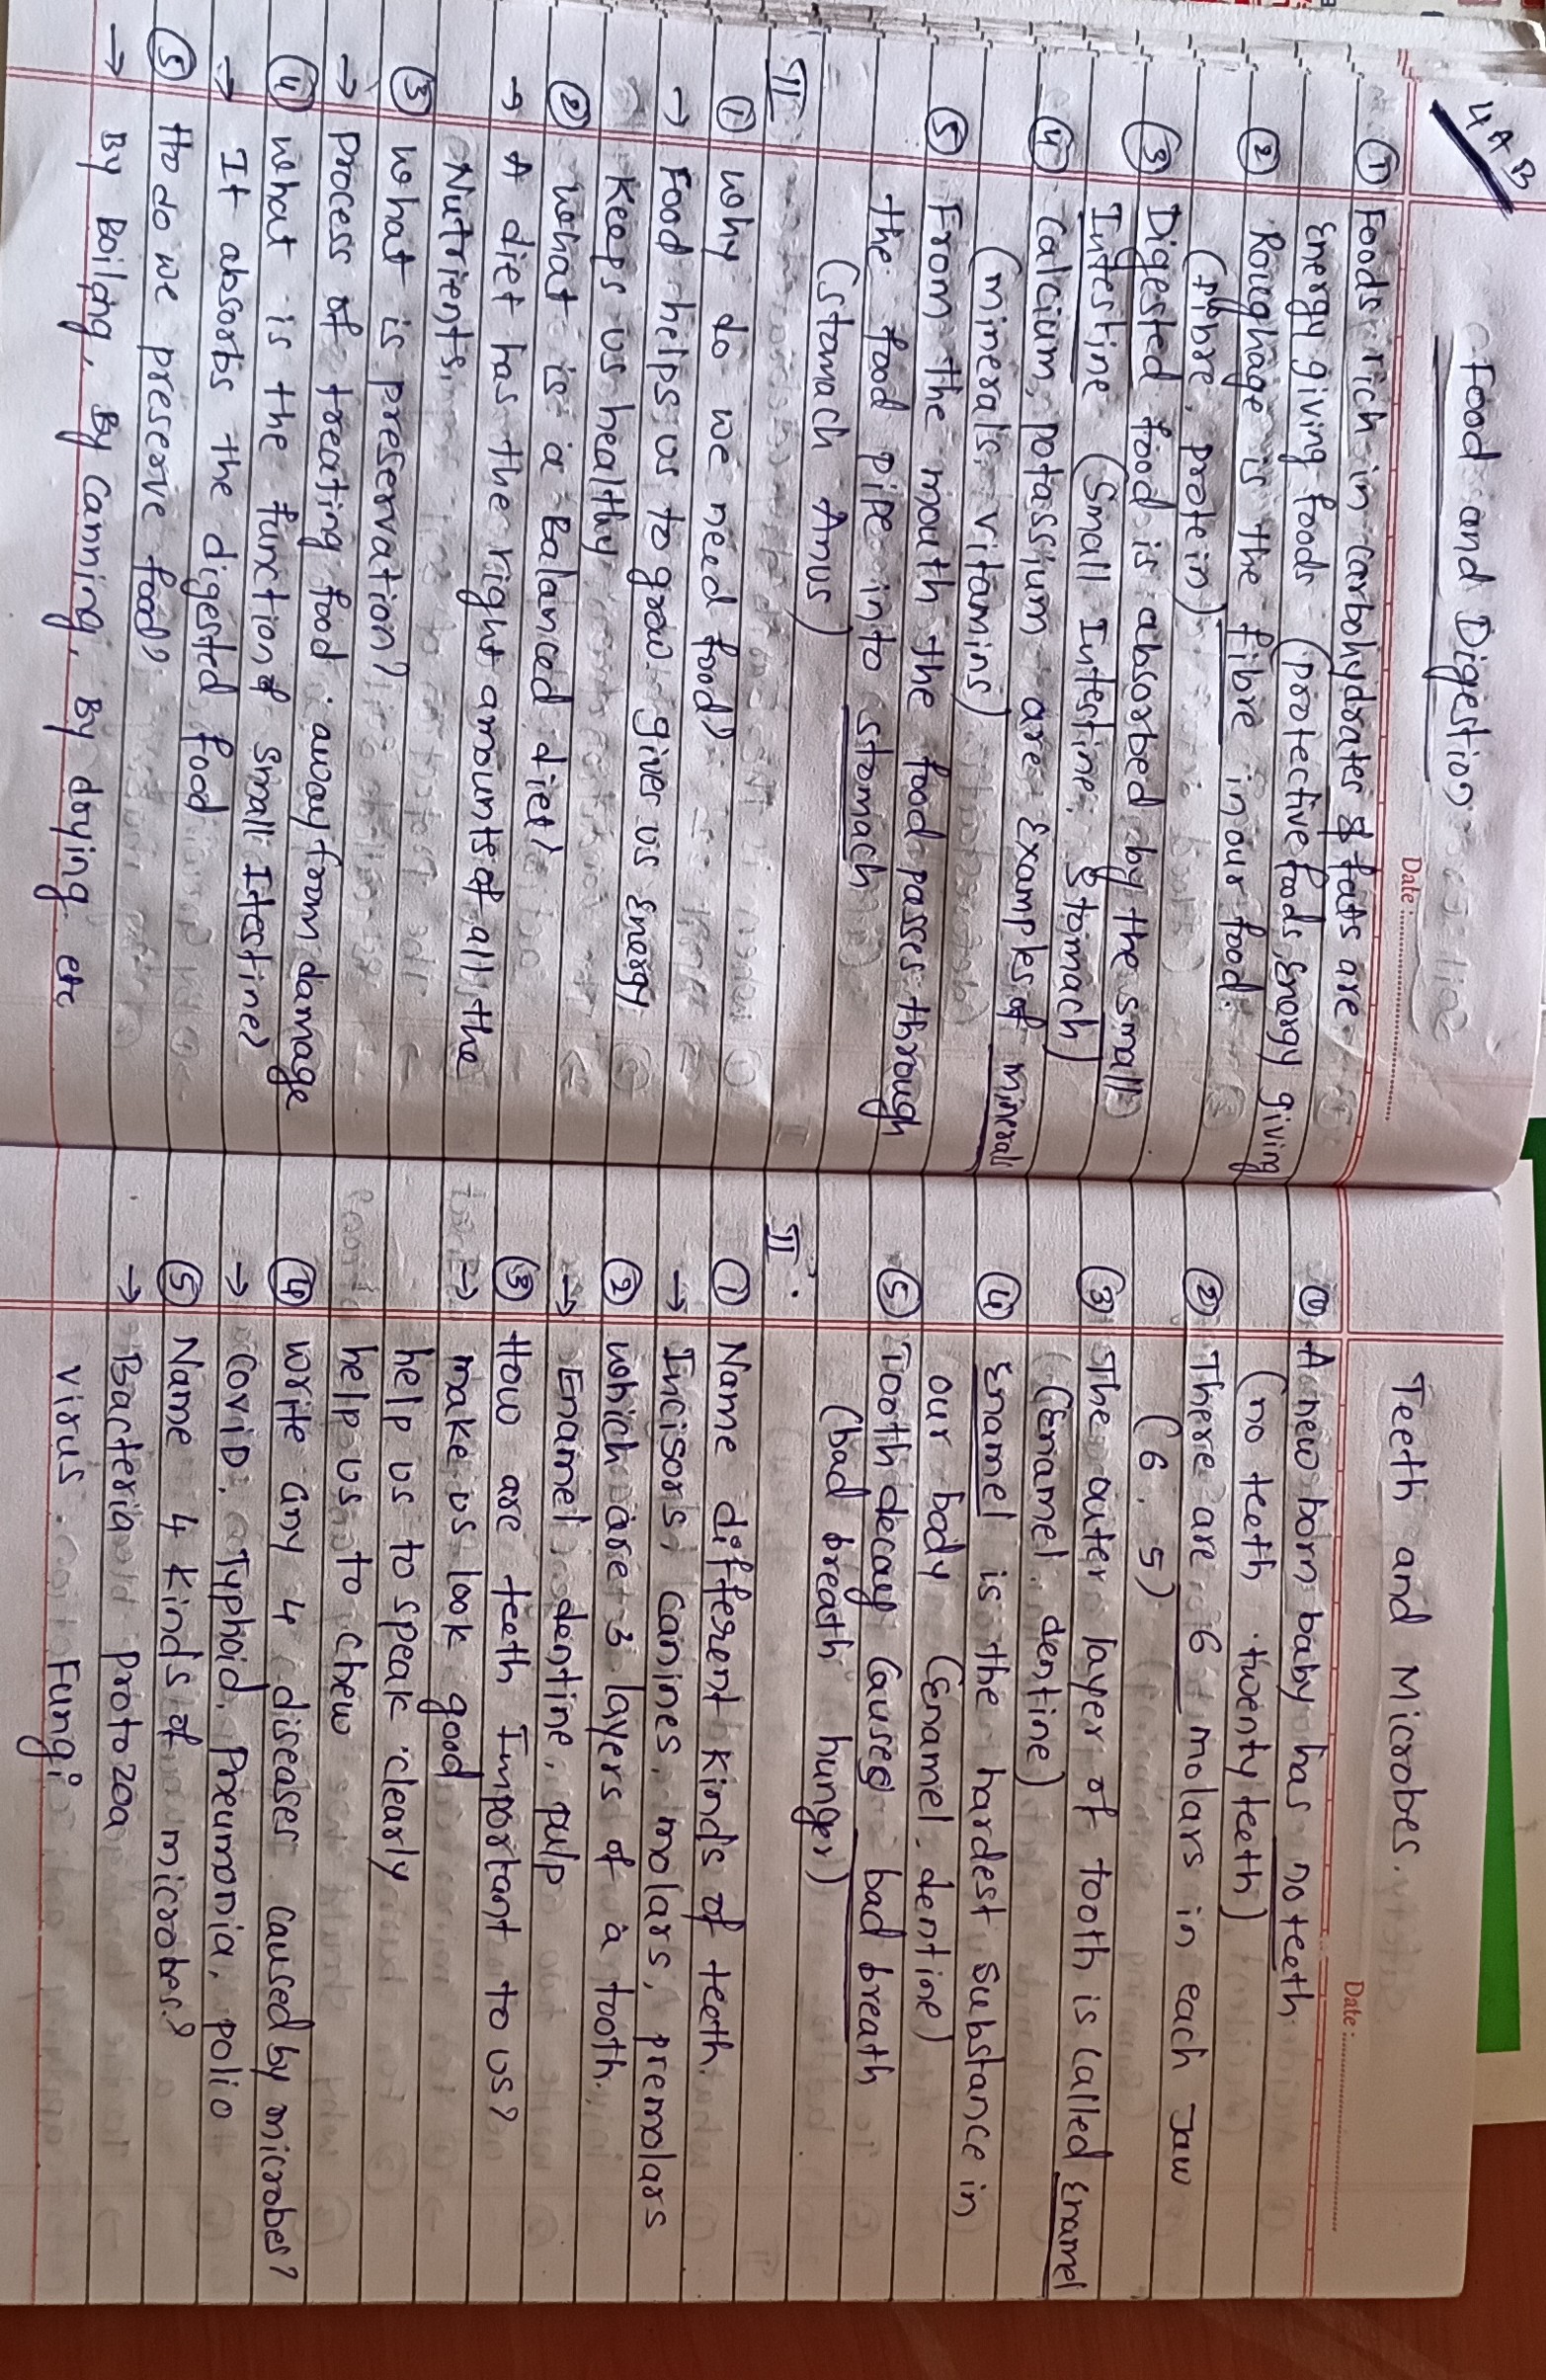 4 A B
Food and Digestion
Date:
① Foods rich in carbohydrates & fats are
Energy giving foods (protective foods, Energy giving
② Roughage is the fibre in our food.
(fibre, protein)
③ Digested food is absorbed by the small
Intestine (Small Intestine, Stomach)
④ Calcium, potassium are Examples of minerals
(minerals, vitamins)
⑤ From the mouth the food passes through
the food pipe into stomach
(stamach Anus)
II
① why do we need food?
→ Food helps us to grow. gives us Energy
Keeps us healthy
② what is a Balanced diet?
→ A diet has the right amounts of all the
Nutrients.
③ what is preservation?
→ Process of treating food away from damage
④ what is the function of small Itestine?
→ It absorbs the digested food
⑤ Ho do we preserve food?
→ By Boiling, By canning, By drying etc
Teeth and Microbes.
Date:
① A new born baby has no teeth
(no teeth twenty teeth)
② There are 6 molars in each Jaw
(6, 5)
③ The outer layer of tooth is called Enamel
(Enamel, dentine)
④ Enamel is the hardest substance in
our body (Enamel, dentine)
⑤ Tooth decay caused bad breath
(bad breath hunger)
II.
① Name different kinds of teeth.
→ Incisors, canines, molars, premolars
② which are 3 layers of a tooth.
→ Enamel dentine, pulp
③ How are teeth Important to us?
→ make us look good
help us to speak clearly
help us to chew
④ write any 4 diseases caused by microbes?
→ Covid, Typhoid, Pneumonia, polio
⑤ Name 4 kinds of microbes?
→ Bacteria protozoa
virus Fungi